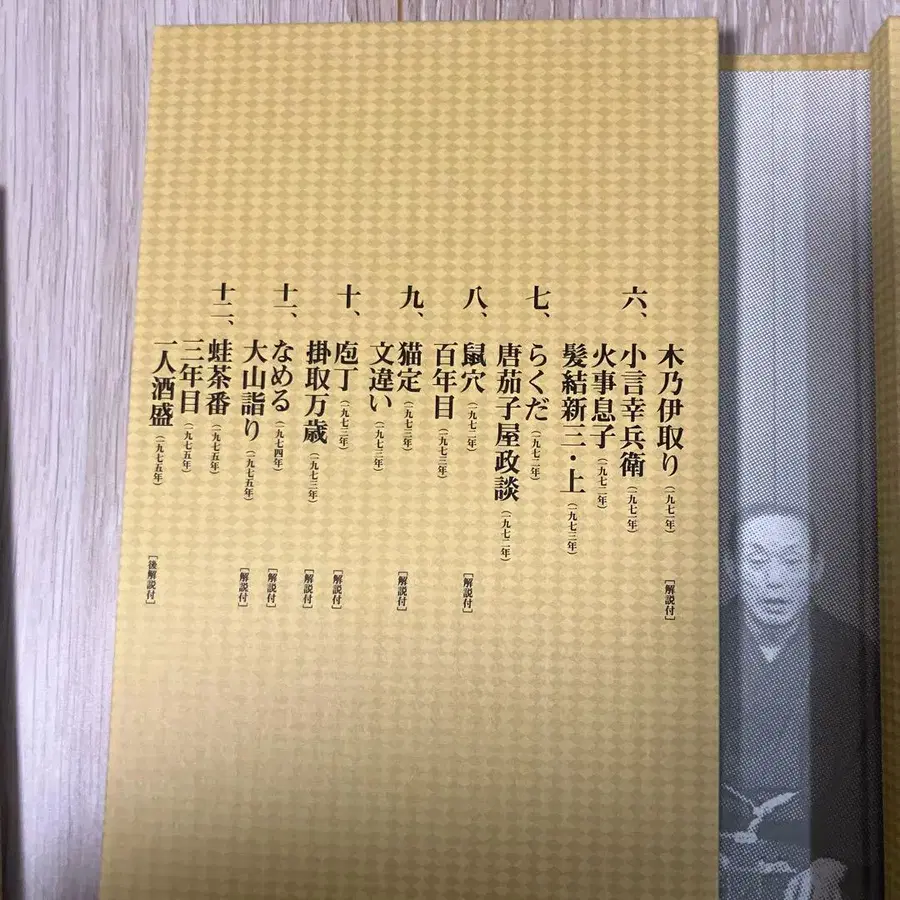 木乃伊取り（一九七一年）［解説付］
六、小言幸兵衛（一九七一年）
火事息子（一九七二年）
髪結新三・上（一九七三年）
七、らくだ（一九七二年）
唐茄子屋政談（一九七二年）
八、鼠穴（一九七二年）［解説付］
百年目（一九七三年）
九、猫定（一九七三年）［解説付］
文違い（一九七三年）
十、庖丁（一九七三年）［解説付］
掛取万歳（一九七三年）［解説付］
十一、なめる（一九七四年）［解説付］
大山詣り（一九七五年）［解説付］
十二、蛙茶番（一九七五年）
三年目（一九七五年）
一人酒盛（一九七五年）［後解説付］